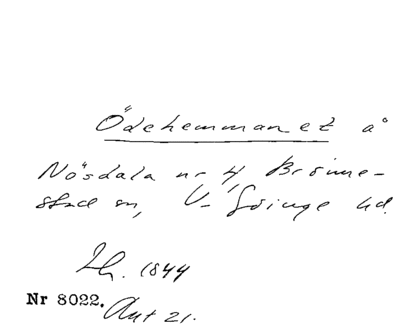 Ödehemmanet å
Nösdala nr 4, Brönne-
stad sn, V. Göinge hd.
Lh. 1844
Nr 8022. Aut 21.